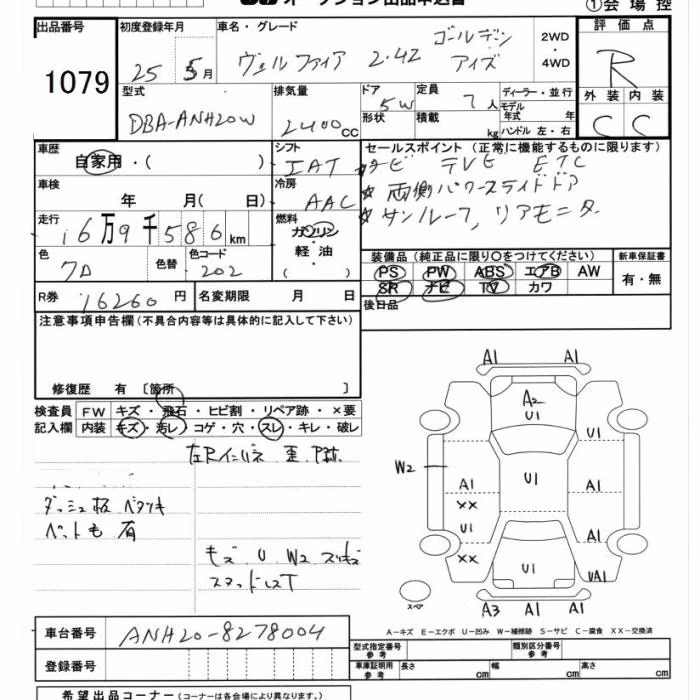 オークション出品申込書
①会場控
出品番号
1079
初度登録年月
25 5月
車名・グレード
ヴェルファイア 2.4Z ゴールデン アイズ
2WD・4WD
評価点
R
外装 内装
C C
型式
DBA-ANH20W
排気量
2400cc
ドア
5W
形状
定員
7人
積載
kg
ディーラー・並行
モデル年式 年
ハンドル 左・右
車歴
自家用・( )
シフト
IAT
セールスポイント(正常に機能するものに限ります)
ナビ TVE ETC
☆ 両側パワースライドドア
☆ サンルーフ, リアモニタ
車検
年 月( 日)
冷房
AAC
走行
16万9千586km
燃料
ガソリン
軽油
( )
色
色替
色コード
202
装備品(純正品に限り○をつけてください)
PS PW ABS エアB AW
SR ナビ TV カワ
新車保証書
有・無
後日品
R券
16260円
名変期限 月 日
注意事項申告欄(不具合内容等は具体的に記入して下さい)
修復歴 有 [箇所 ]
検査員記入欄
FW キズ・飛石・ヒビ割・リペア跡・×要
内装 キズ・汚レ・コゲ・穴・スレ・キレ・破レ
左Rインパネ 歪 P跡
ダッシュ板 ベタツキ
ペットも 有
キズ U W2 スリキズ
スタッドレスT
A1 A1
A2
U1
U1
W2
U1
A1
A1
××
U1
A1
××
U1
UA1
スペア
A3 A1 A1
A-キズ E-エクボ U-凹み W-補修跡 S-サビ C-腐食 XX-交換済
車台番号
ANH20-8278004
登録番号
型式指定番号 参考
類別区分番号 参考
車庫証明用 参考
長さ cm 幅 cm 高さ cm
希望出品コーナー(コーナーは各会場により異なります。)